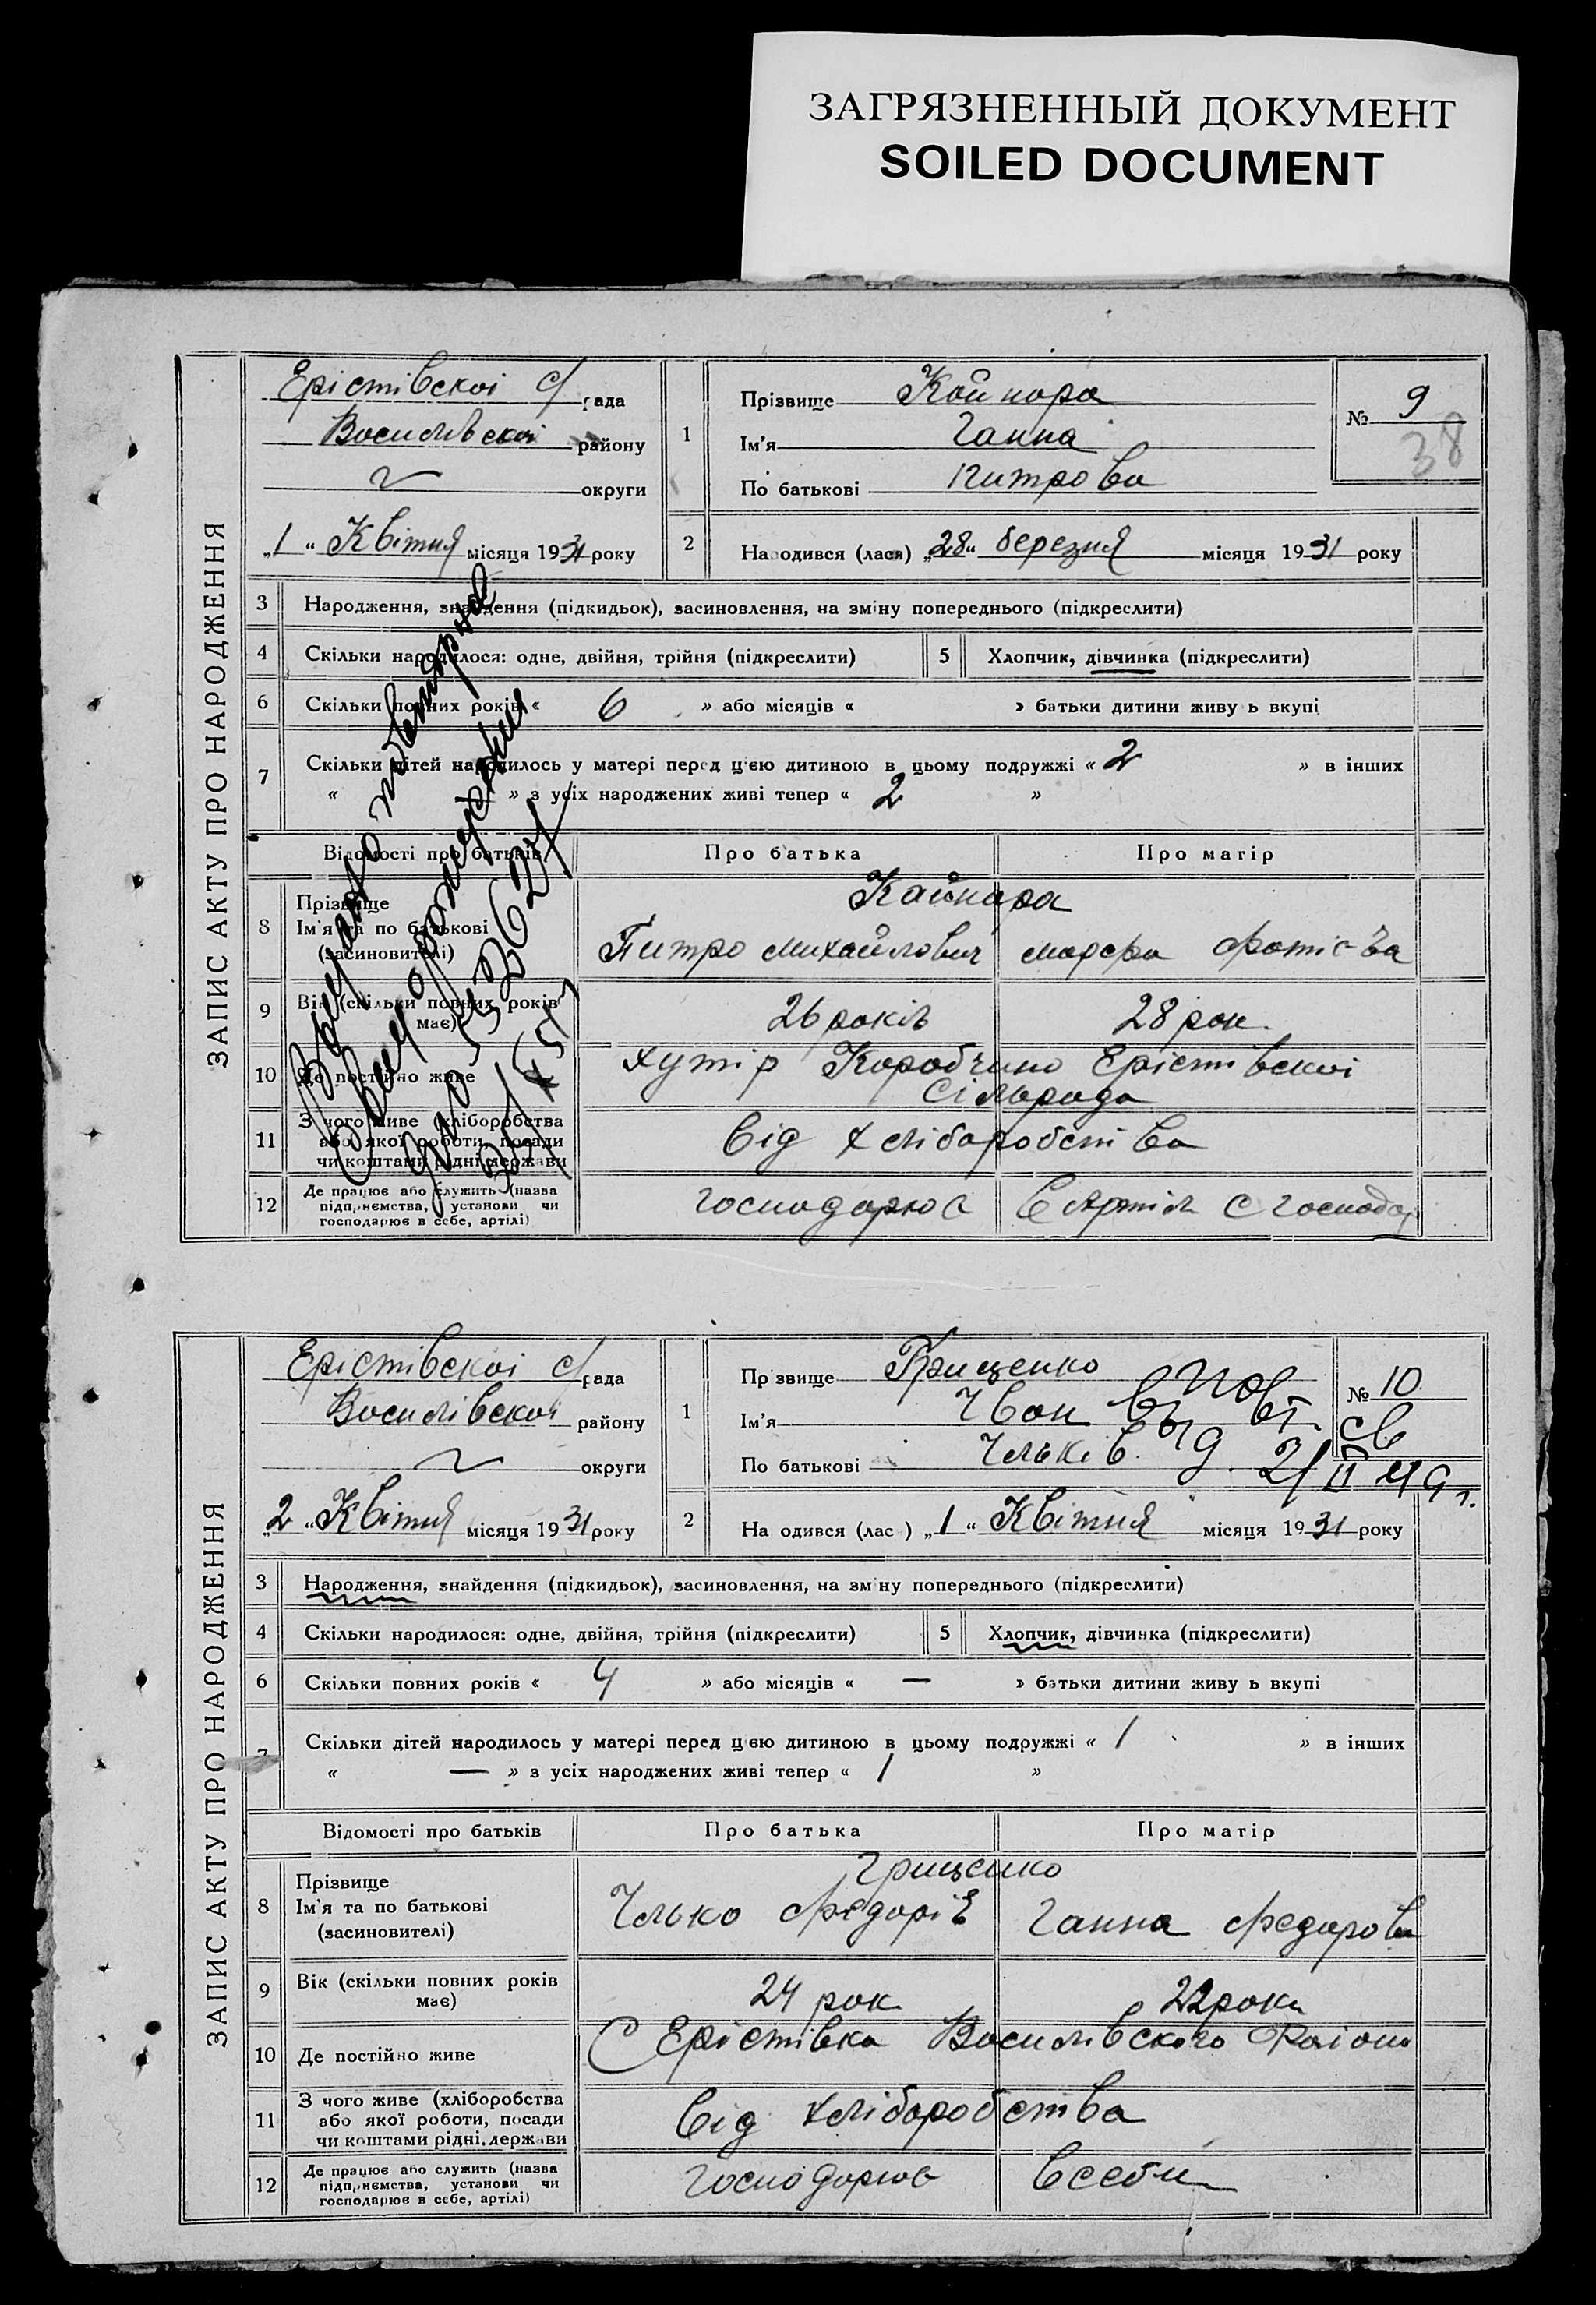 ЗАГРЯЗНЕННЫЙ ДОКУМЕНТ
SOILED DOCUMENT
ЗАПИС АКТУ ПРО НАРОДЖЕННЯ
Ерістівскоі с/рада
Василівскоі району
округи
„1“ Квітня місяця 1931 року
1
Прізвище Кайнара
Ім'я Ганна
По батькові Питрова
№ 9
38
2 Народився (лася) „28“ березня місяця 1931 року
3 Народження, знайдення (підкидьок), засиновлення, на зміну попереднього (підкреслити)
4 Скільки народилося: одне, двійня, трійня (підкреслити) 5 Хлопчик, дівчинка (підкреслити)
6 Скільки повних років « 6 » або місяців « » батьки дитини живуть вкупі
7 Скільки дітей народилось у матері перед цією дитиною в цьому подружжі « 2 » в інших
« » з усіх народжених живі тепер « 2 »
Відомості про батьків Про батька Про матір
8 Прізвище
Ім'я та по батькові
(засиновителі)
Кайнара
Питро Михайлович
9 Вік (скільки повних років має)
26 років 28 рок.
10 Де постійно живе
хутір Коробчино Ерістівскоі
Сільрада
11 З чого живе (хліборобства
або якої роботи, посади
чи коштами рідні, держави
від хліборобства
12 Де працює або служить (назва
підприємства, установи чи
господарює в себе, артілі)
господарює
ЗАПИС АКТУ ПРО НАРОДЖЕННЯ
Ерістівскоі с/рада
Василівскоі району
округи
„2“ Квітня місяця 1931 року
1
Прізвище Грищенко
Ім'я Іван
По батькові Ільків.
№ 10
2 Народився (лася) „1“ Квітня місяця 1931 року
3 Народження, знайдення (підкидьок), засиновлення, на зміну попереднього (підкреслити)
4 Скільки народилося: одне, двійня, трійня (підкреслити) 5 Хлопчик, дівчинка (підкреслити)
6 Скільки повних років « 4 » або місяців « — » батьки дитини живуть вкупі
7 Скільки дітей народилось у матері перед цією дитиною в цьому подружжі « 1 » в інших
« — » з усіх народжених живі тепер « 1 »
Відомості про батьків Про батька Про матір
8 Прізвище
Ім'я та по батькові
(засиновителі)
Грищенко
Ілько Федорів Ганна Федорова
9 Вік (скільки повних років має)
24 рок 22 роки
10 Де постійно живе
С Ерістівка Василівского Раіону
11 З чого живе (хліборобства
або якої роботи, посади
чи коштами рідні, держави
від хліборобства
12 Де працює або служить (назва
підприємства, установи чи
господарює в себе, артілі)
господарює в себи